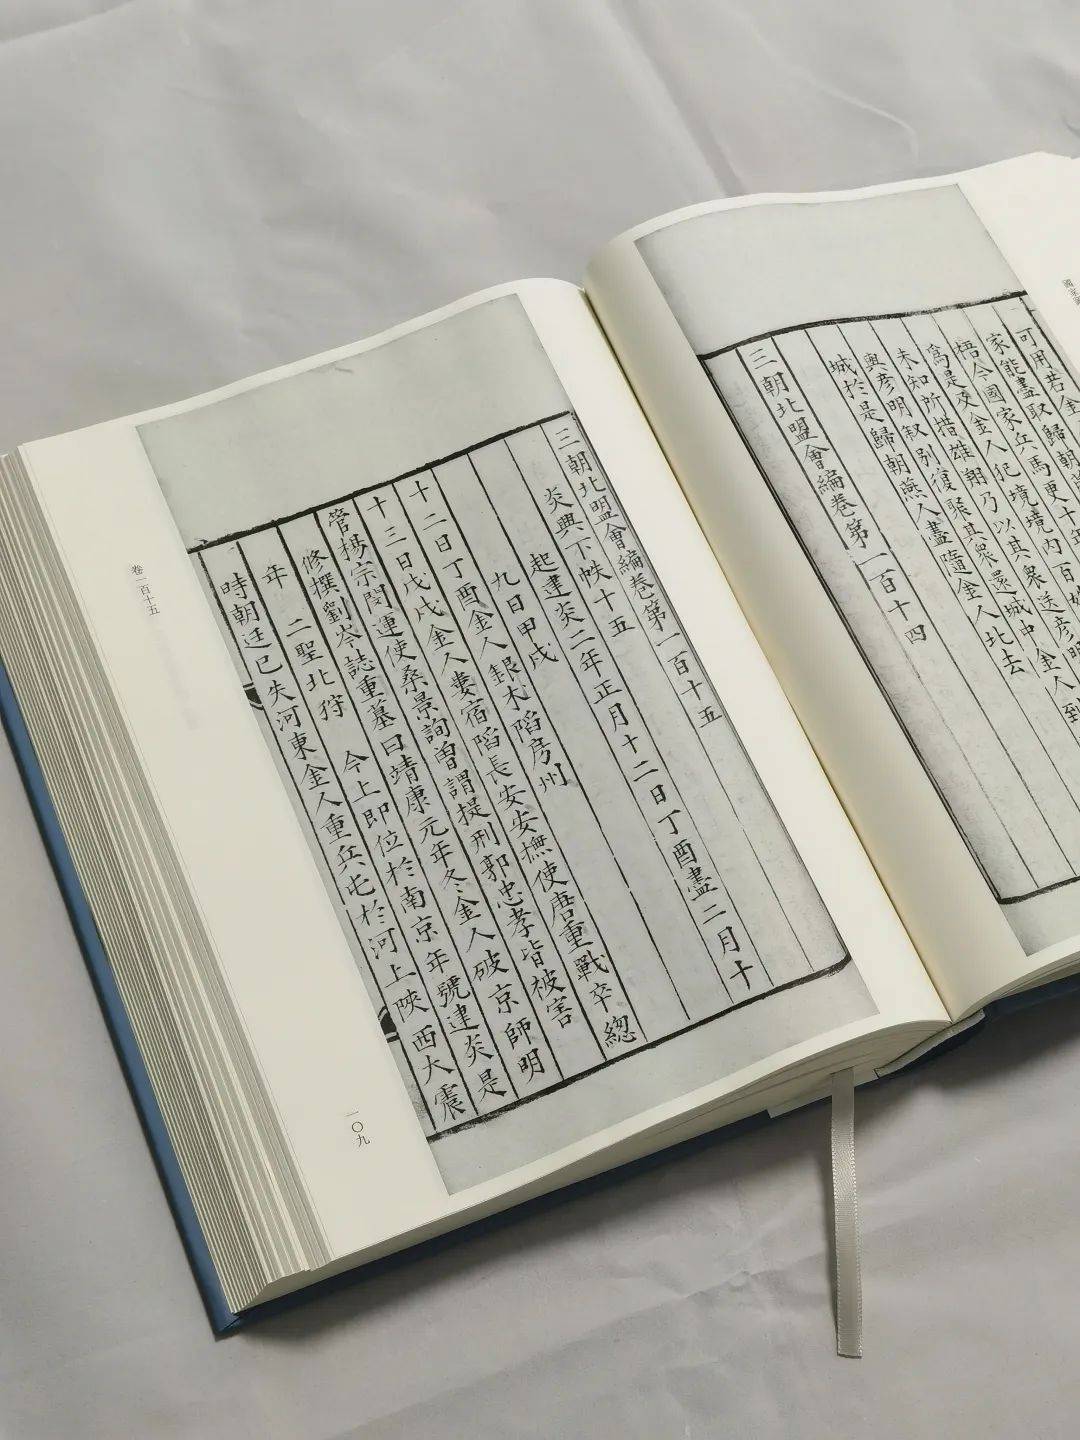 國家
可用若金
家能盡取歸朝
梧今國家兵馬更十五
爲是及金人犯境境内百姓
未知所措雄翱乃以其衆送彥明
與彥明叙别復聚其衆還城中金人到
城於是歸朝燕人盡隨金人北去
三朝北盟會編卷第一百十四
三朝北盟會編卷第一百十五
炎興下帙十五
起建炎二年正月十二日丁酉盡二月十
九日甲戌
十二日丁酉金人銀朮陷房州
十三日戊戌金人婁宿陷長安安撫使唐重戰卒緫
管楊宗閔運使桑景詢曽謂提刑郭忠孝皆被害
修撰劉岑誌重墓曰靖康元年冬金人破京師明
年 二聖北狩 今上即位於南京年號建炎是
時朝廷已失河東金人重兵屯於河上陝西大震
卷一百十五
一〇九